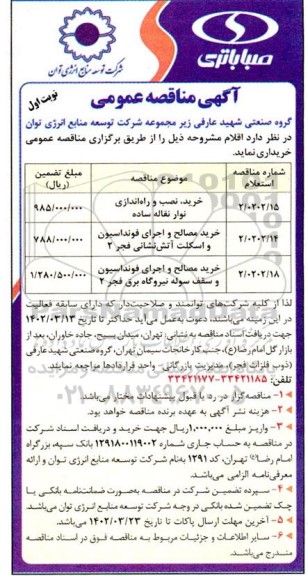 صباباتری
شرکت توسعه منابع انرژی توان
نوبت اول
آگهی مناقصه عمومی
گروه صنعتی شهید عارفی زیر مجموعه شرکت توسعه منابع انرژی توان
در نظر دارد اقلام مشروحه ذیل را از طریق برگزاری مناقصه عمومی
خریداری نماید.
شماره مناقصه استعلام | موضوع مناقصه | مبلغ تضمین (ریال)
۲/۰۲۰۲/۱۵ | خرید، نصب و راه‌اندازی نوار نقاله ساده | ۹۸۵/۰۰۰/۰۰۰
۲/۰۲۰۲/۱۴ | خرید مصالح و اجرای فونداسیون و اسکلت آتش‌نشانی فجر ۲ | ۷۸۸/۰۰۰/۰۰۰
۲/۰۲۰۲/۱۸ | خرید مصالح و اجرای فونداسیون و سقف سوله نیروگاه برق فجر ۲ | ۱/۲۸۰/۵۰۰/۰۰۰
لذا از کلیه شرکت‌های توانمند و صلاحیت‌دار که دارای سابقه فعالیت
در این زمینه می‌باشند، دعوت به‌عمل می‌آید حداکثر تا تاریخ ۱۴۰۲/۰۳/۱۳
جهت دریافت اسناد مناقصه به نشانی: تهران، میدان بسیج، جاده خاوران، بعد از
بازار گل امام رضا(ع)، جنب کارخانجات سیمان تهران، گروه صنعتی شهید عارفی
(ذوب فلزات فجر)، مدیریت بازرگانی- واحد قراردادها مراجعه نمایند.
تلفن: ۳۳۴۲۱۱۸۵-۳۳۴۲۱۱۷۷
۱- مناقصه‌گزار در رد یا قبول پیشنهادات مختار می‌باشد.
۲- هزینه نشر آگهی به عهده برنده مناقصه خواهد بود.
۳- واریز مبلغ ۱,۰۰۰,۰۰۰ریال جهت خرید و دریافت اسناد شرکت
در مناقصه به حساب جاری شماره ۱۲۹۱۸۰۰۱۱۹۰۰۲ بانک سپه، بزرگراه
امام رضا(ع) تهران، کد ۱۲۹۱ به‌نام شرکت توسعه منابع انرژی توان و ارائه
معرفی‌نامه الزامی می‌باشد.
۴- سپرده تضمین شرکت در مناقصه به‌صورت ضمانت‌نامه بانکی یا
چک تضمین شده بانکی در وجه شرکت توسعه منابع انرژی توان می‌باشد.
۵- آخرین مهلت ارسال پاکات تا تاریخ ۱۴۰۲/۰۳/۲۳ می‌باشد.
۶- سایر اطلاعات و جزئیات مربوط به مناقصه فوق در اسناد مناقصه
مندرج می‌باشد.